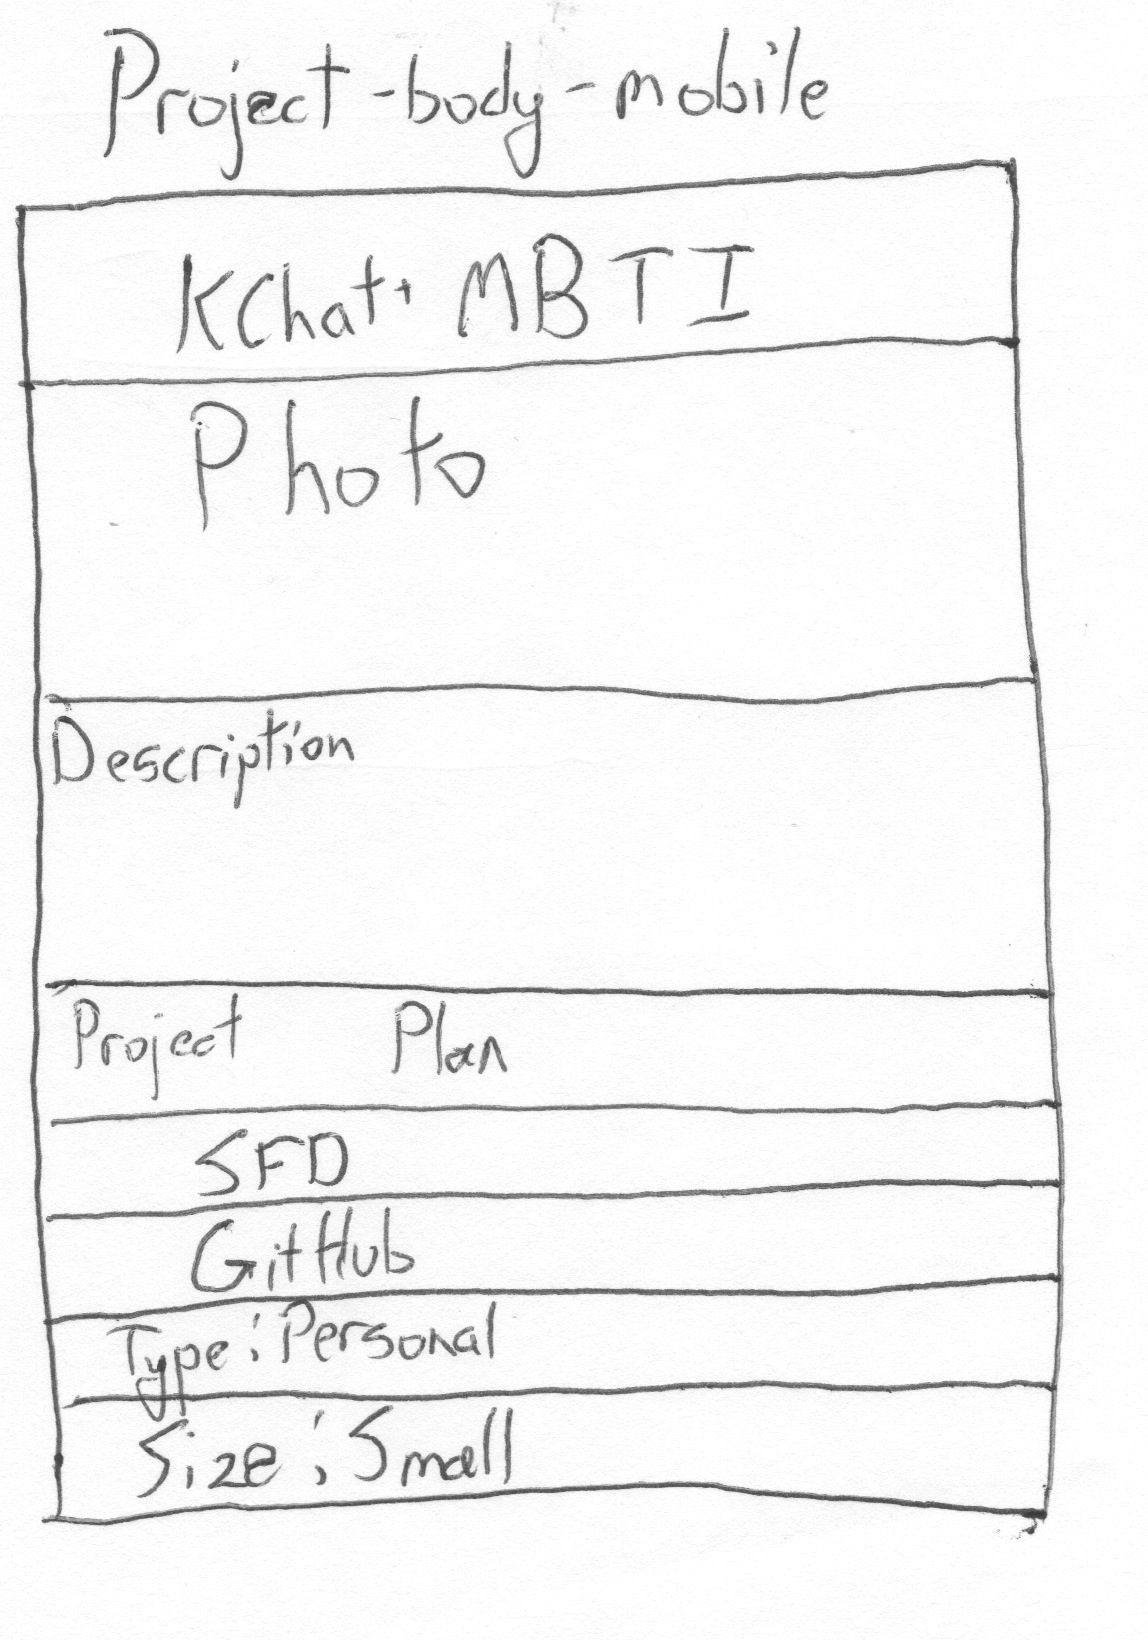 Project-body-mobile
KChat+ MBTI
Photo
Description
Project Plan
SFD
GitHub
Type: Personal
Size: Small